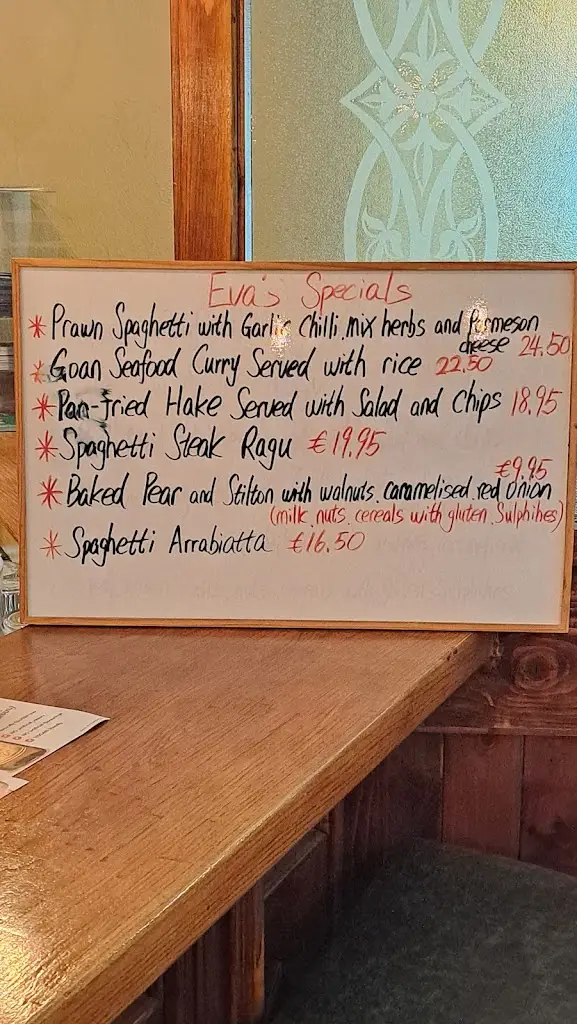 Eva's Specials
* Prawn Spaghetti with Garlic Chilli, mix herbs and Parmeson
cheese 24.50
* Goan Seafood Curry Served with rice 22.50
* Pan-fried Hake Served with Salad and Chips 18.95
* Spaghetti Steak Ragu €19.95
€9.95
* Baked Pear and Stilton with walnuts, caramelised red onion
(milk, nuts, cereals with gluten, Sulphihes)
* Spaghetti Arrabiatta €16.50